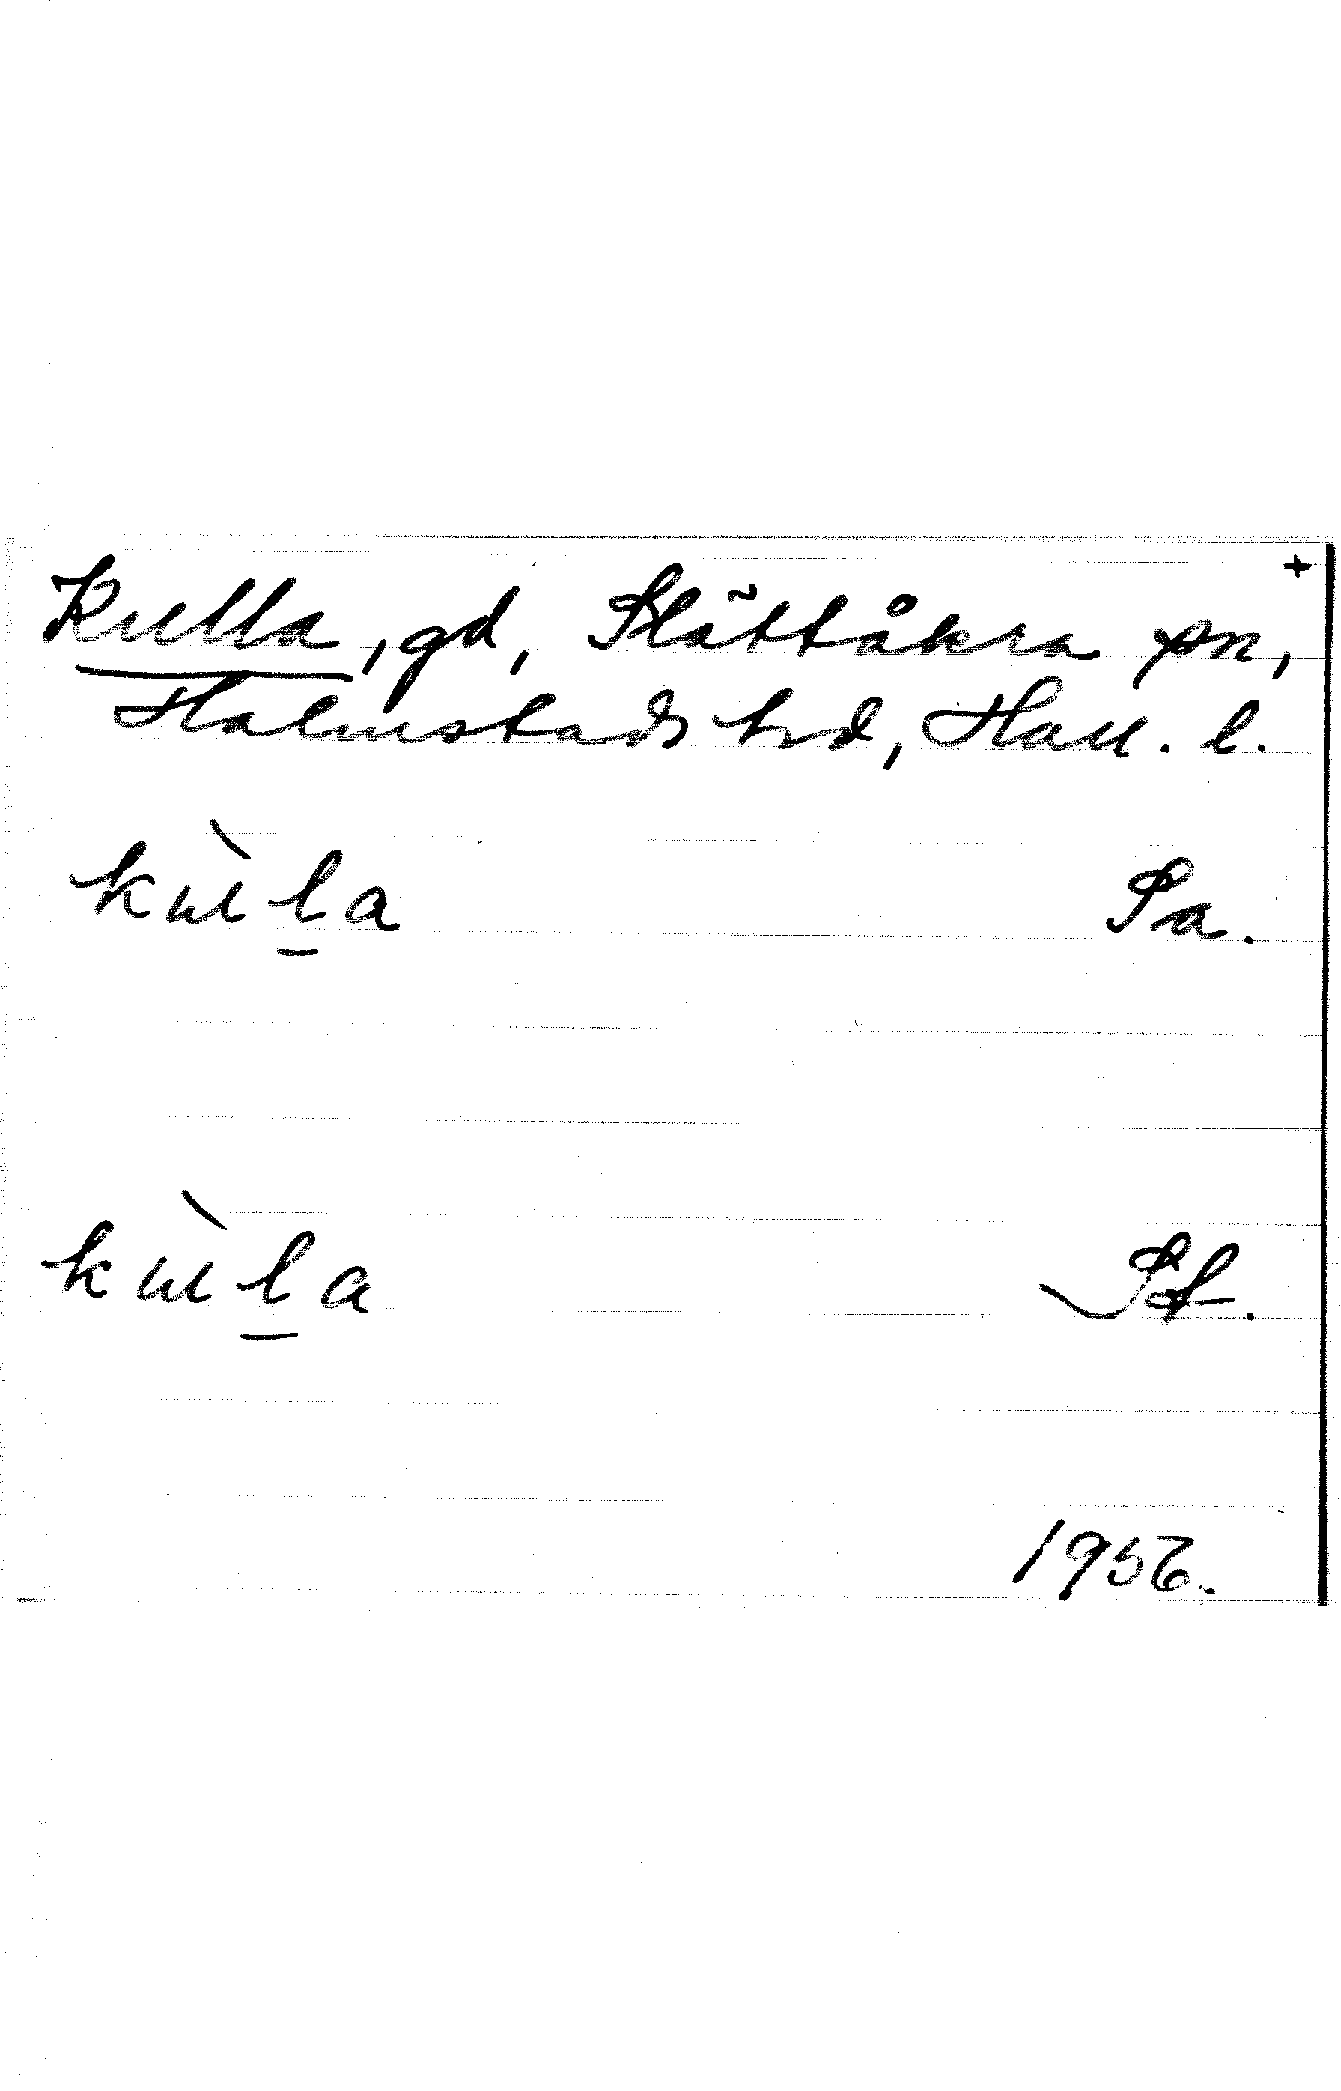 +
Kulla, gd, Slättåkra sn,
Halmstads hrd, Hall. l.
kùl̲a Sa.
kùl̲a Sf.
1956.